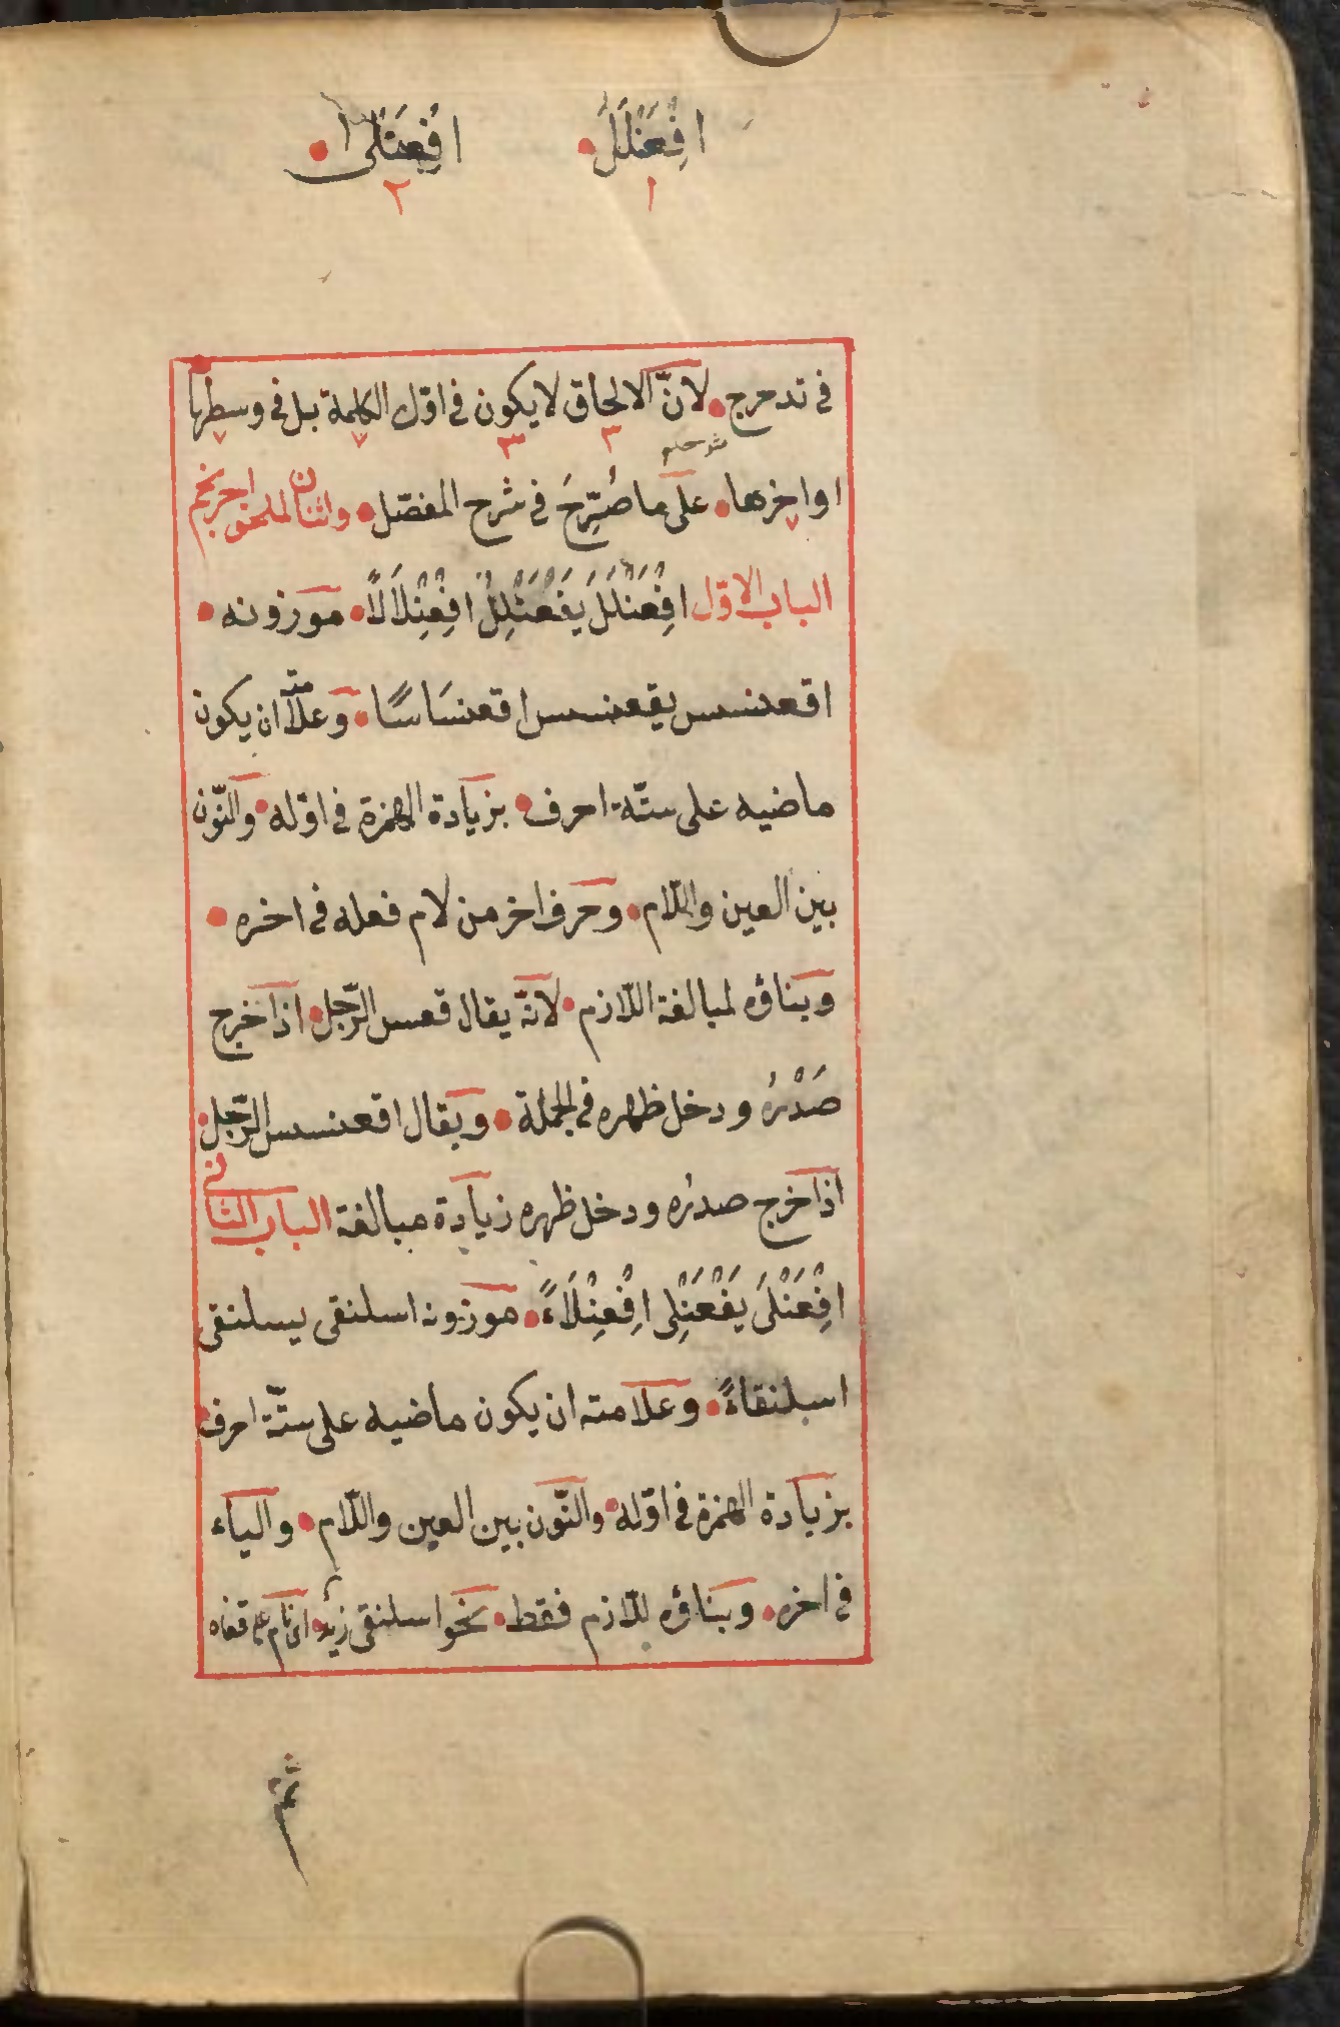 اِفْعَنْلَلَ اِفْعَنْلٰى
١ ٢
فى تدحرج لانّ الالحاق لا يكون فى اوّل الكلمة بل فى وسطها
اواخرها على ما صُرِّحَ فى شرح المفصّل واثنان لملحق احرنجم
الباب الاوّل اِفْعَنْلَلَ يَفْعَنْلِلُ اِفْعِنْلَالًا موزونه
اقعنسس يقعنسس اقعنسَاسًا وعلامته ان يكون
ماضيه على ستّة احرف بزيادة الهمزة فى اوّله والنّون
بين العين واللّام وحرف اخر من لام فعله فى اخره
وبناؤه لمبالغة اللّازم لانّه يقال قعس الرّجل اذا خرج
صَدْرُه ودخل ظهره فى الجملة ويقال اقعنسس الرّجل
اذا خرج صدرُه ودخل ظهره زيادة مبالغة الباب الثانى
اِفْعَنْلَى يَفْعَنْلِى اِفْعِنْلَاءً موزونه اسلنقى يسلنقى
اسلنقاءً وعلامته ان يكون ماضيه على ستّة احرف
بزيادة الهمزة فى اوّله والنّون بين العين واللّام والياء
فى اخره وبناؤه للّازم فقط نحو اسلنقى زيدٌ اى نام على قفاه